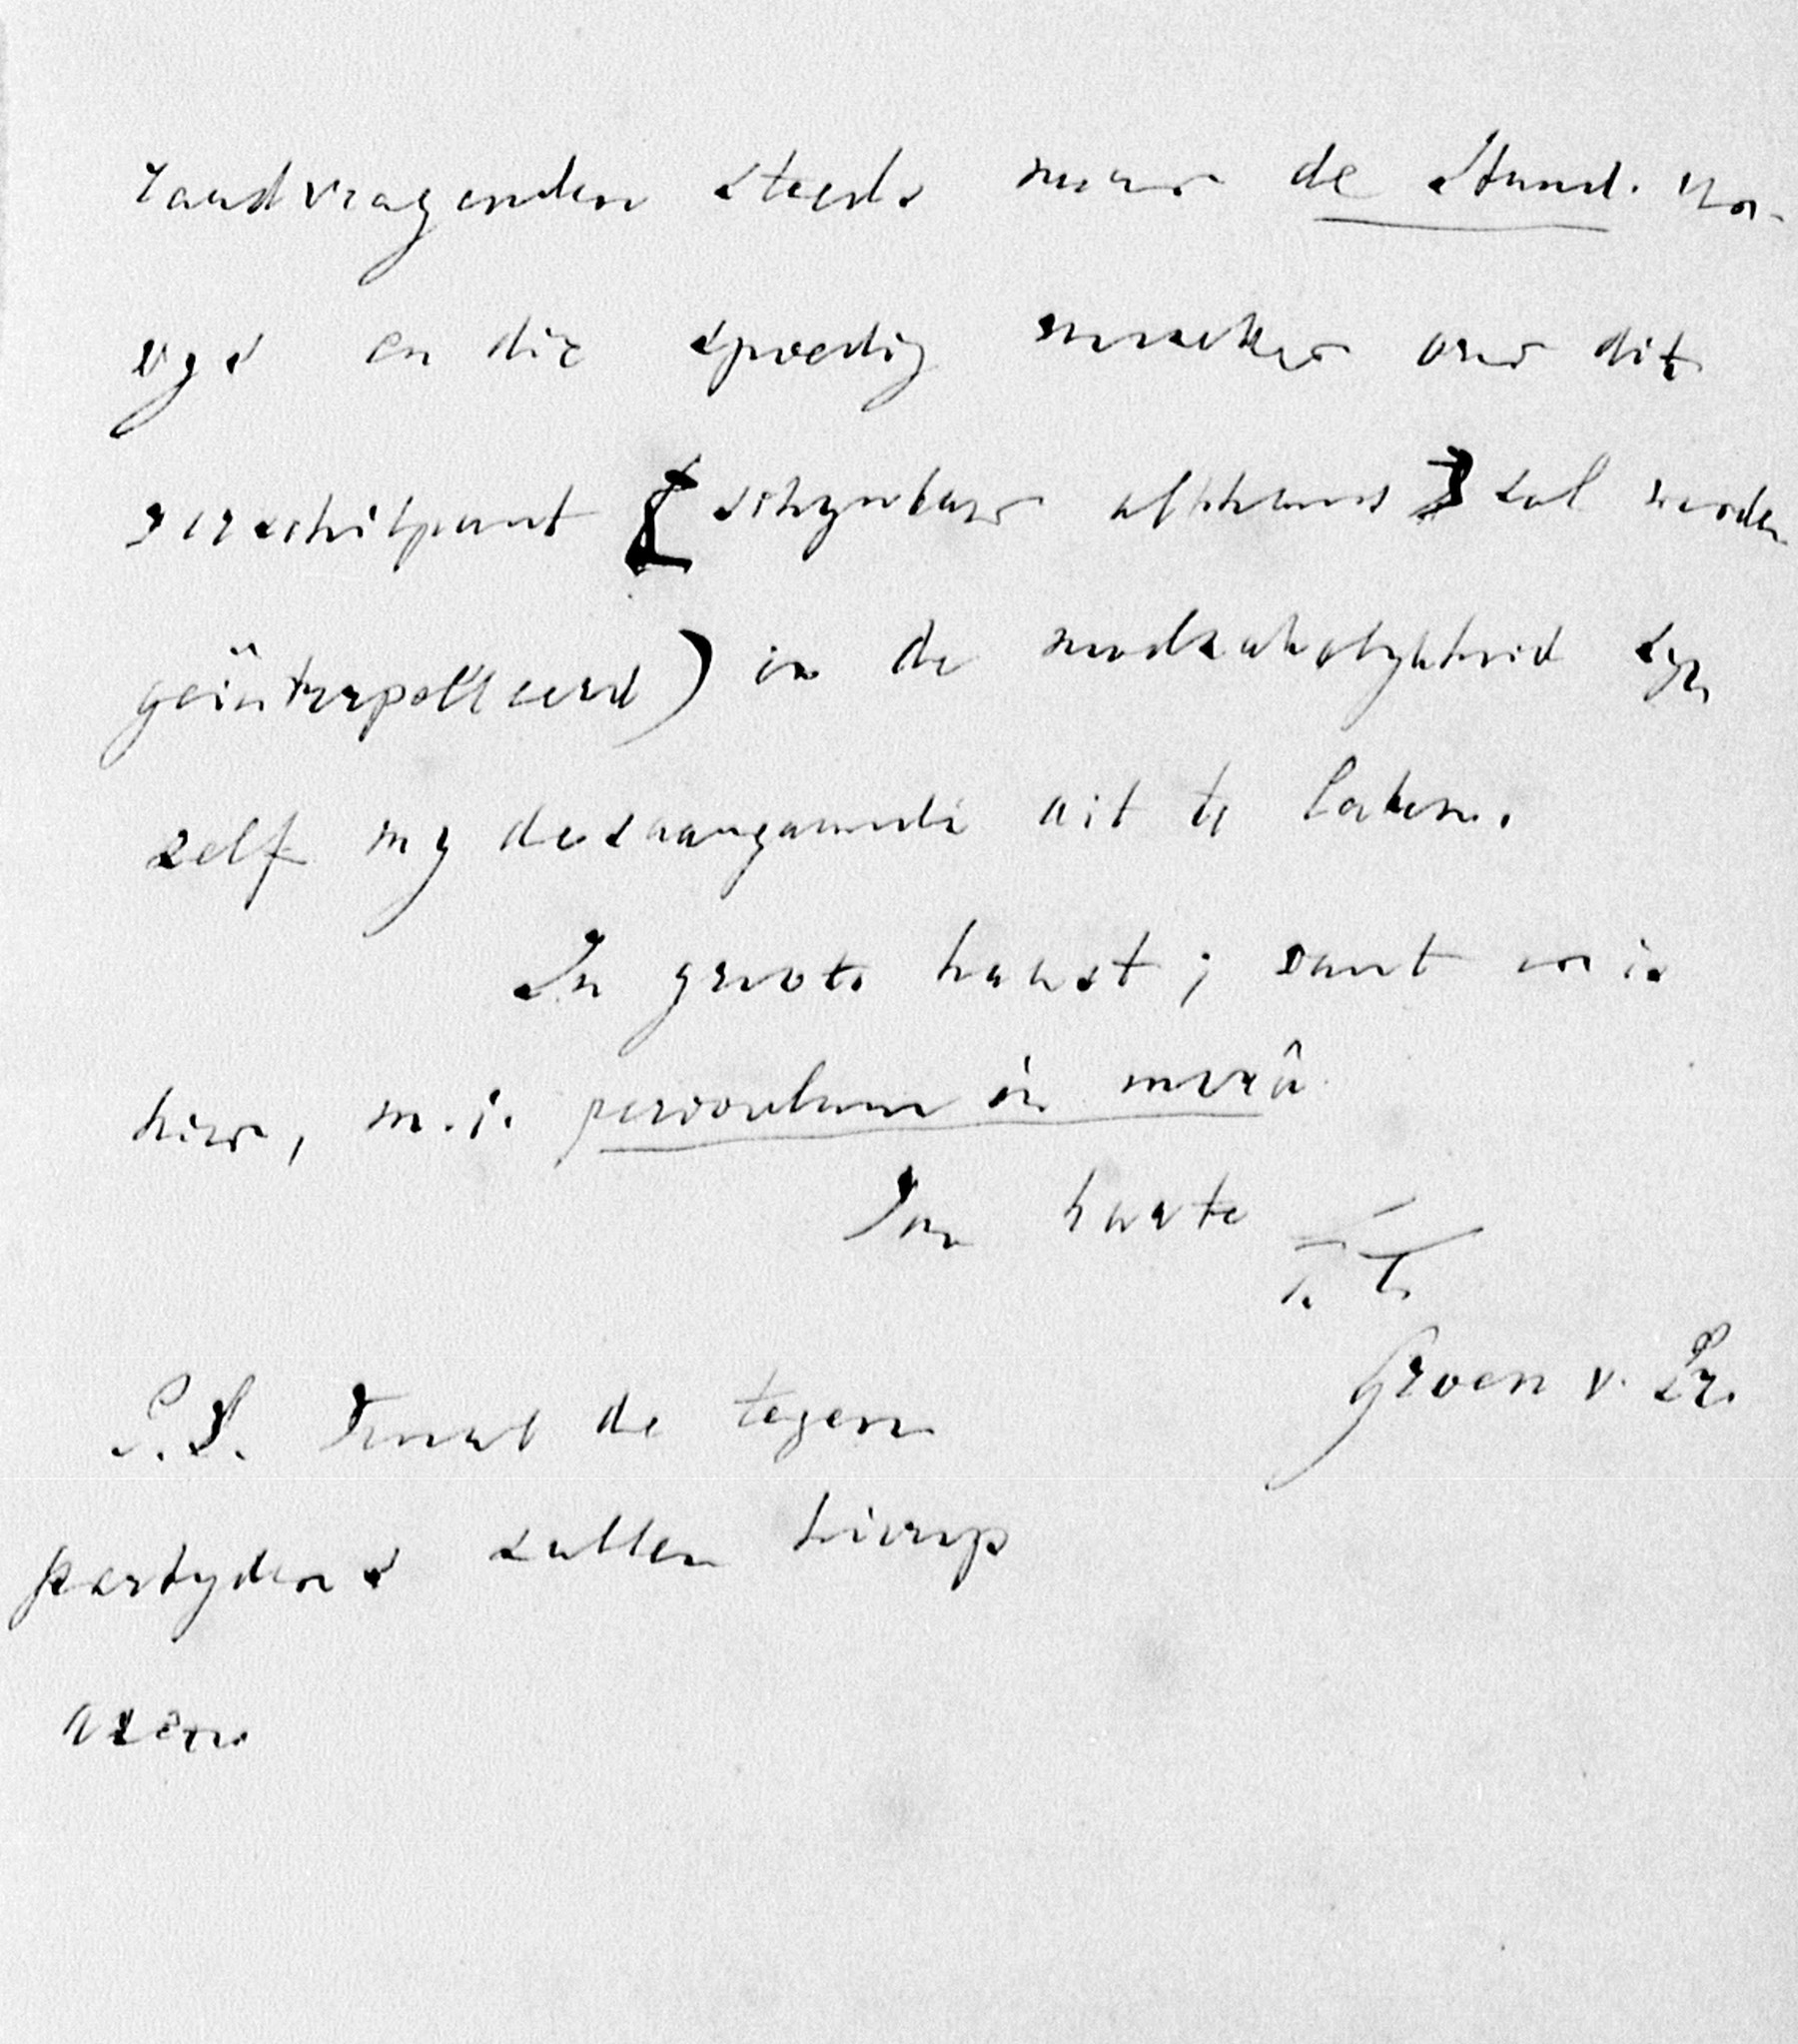 raadvragenden steeds naar de Stand. ver-
wys en die spoedig  over dit
verschilpunt (schynbaar althans) zal worden
geïnterpelleerd) in de noodzakelykheid zyn
zelf my desaangaande uit te laten.
In groote haast; want er is
hier, m.i. periculum in morâ
Van harte
t. t.
Groen v. Pr.
P.S. Vooral de tegen
partyders zullen hierop
azen.